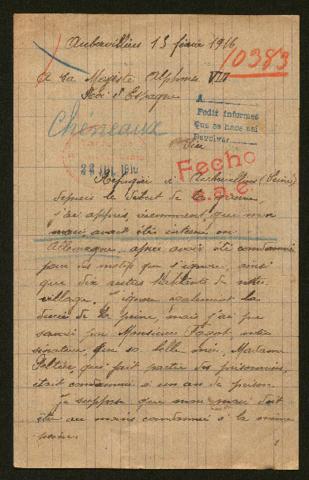 Aubervilliers 15 février 1916
10383
A Sa Majesté Alphonse VIII
Roi d'Espagne
A
Pedir informes
Que se hace asi
Devolver
Chéneaux
Sire
22 JUL 1916
Fecho
Réfugiée à Aubervilliers (Seine)
depuis le début de la guerre,
j'ai appris, récemment, que mon
mari, avait été interné en
Allemagne, après avoir été condamné
pour des motifs que j'ignore, ainsi
que dix autres habitants de notre
village. J'ignore également la
durée de la peine, mais j'ai pu
savoir par Monsieur Fagot, notre
sénateur, que sa belle mère, Madame
qui fait partie des prisonniers,
était condamnée à un an de prison.
Je suppose que mon mari doit
être au moins condamné à la même
peine.